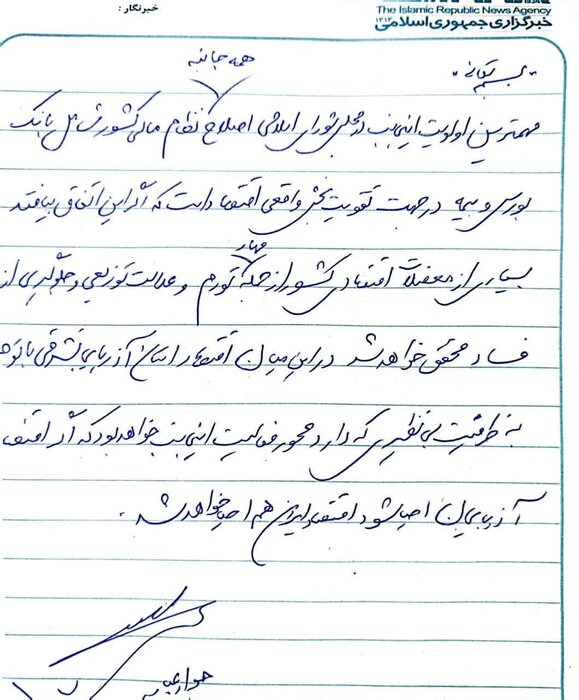 خبرنگار :
The Islamic Republic News Agency
خبرگزاری جمهوری اسلامی
۱۳۱۳
"بسمه تعالی"
همه جانبه
مهمترین اولویت اینجانب در مجلس شورای اسلامی اصلاح نظام مالی کشور شامل بانک
بورس و بیمه در جهت تقویت بخش واقعی اقتصاد است که اگر این اتفاق بیافتد
مهار
بسیاری از معضلات اقتصادی کشور از جمله تورم و عدالت توزیعی و جلوگیری از
فساد محقق خواهد شد در این میان اقتصاد استان آذربایجانشرقی با توجه
به ظرفیت بی نظیری که دارد محور فعالیت اینجانب خواهد بود که اگر اقتصاد
آذربایجان احیا شود اقتصاد ایران هم احیا خواهد شد .